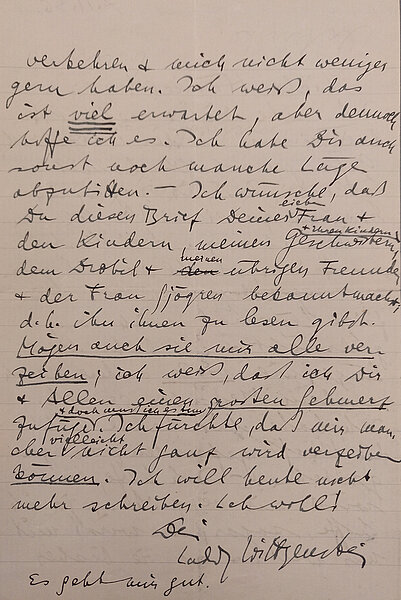 verkehren & mich nicht weniger
gern haben. Ich weiß, das
ist viel erwartet, aber dennoch
hoffe ich es. Ich habe Dir auch
sonst noch manche Lüge
abzubitten. — Ich wünsche, daß
Du diesen Brief Deiner Frau &
den Kindern, meinen Geschwistern, & ihren Kindern,
dem Drobil & den meinen übrigen Freunden
& der Frau Sjögren bekanntmachst,
d.h. ihn ihnen zu lesen gibst.
Mögen auch sie mir alle ver-
zeihen; ich weiß, daß ich Dir
& Allen einen großen Schmerz
zufüge. & doch muß ich es tun. Ich fürchte, daß mir man-
cher vielleicht nicht ganz wird verzeihen
können. Ich will heute nicht
mehr schreiben. Leb wohl!
Dein
Ludwig Wittgenstein
Es geht mir gut.